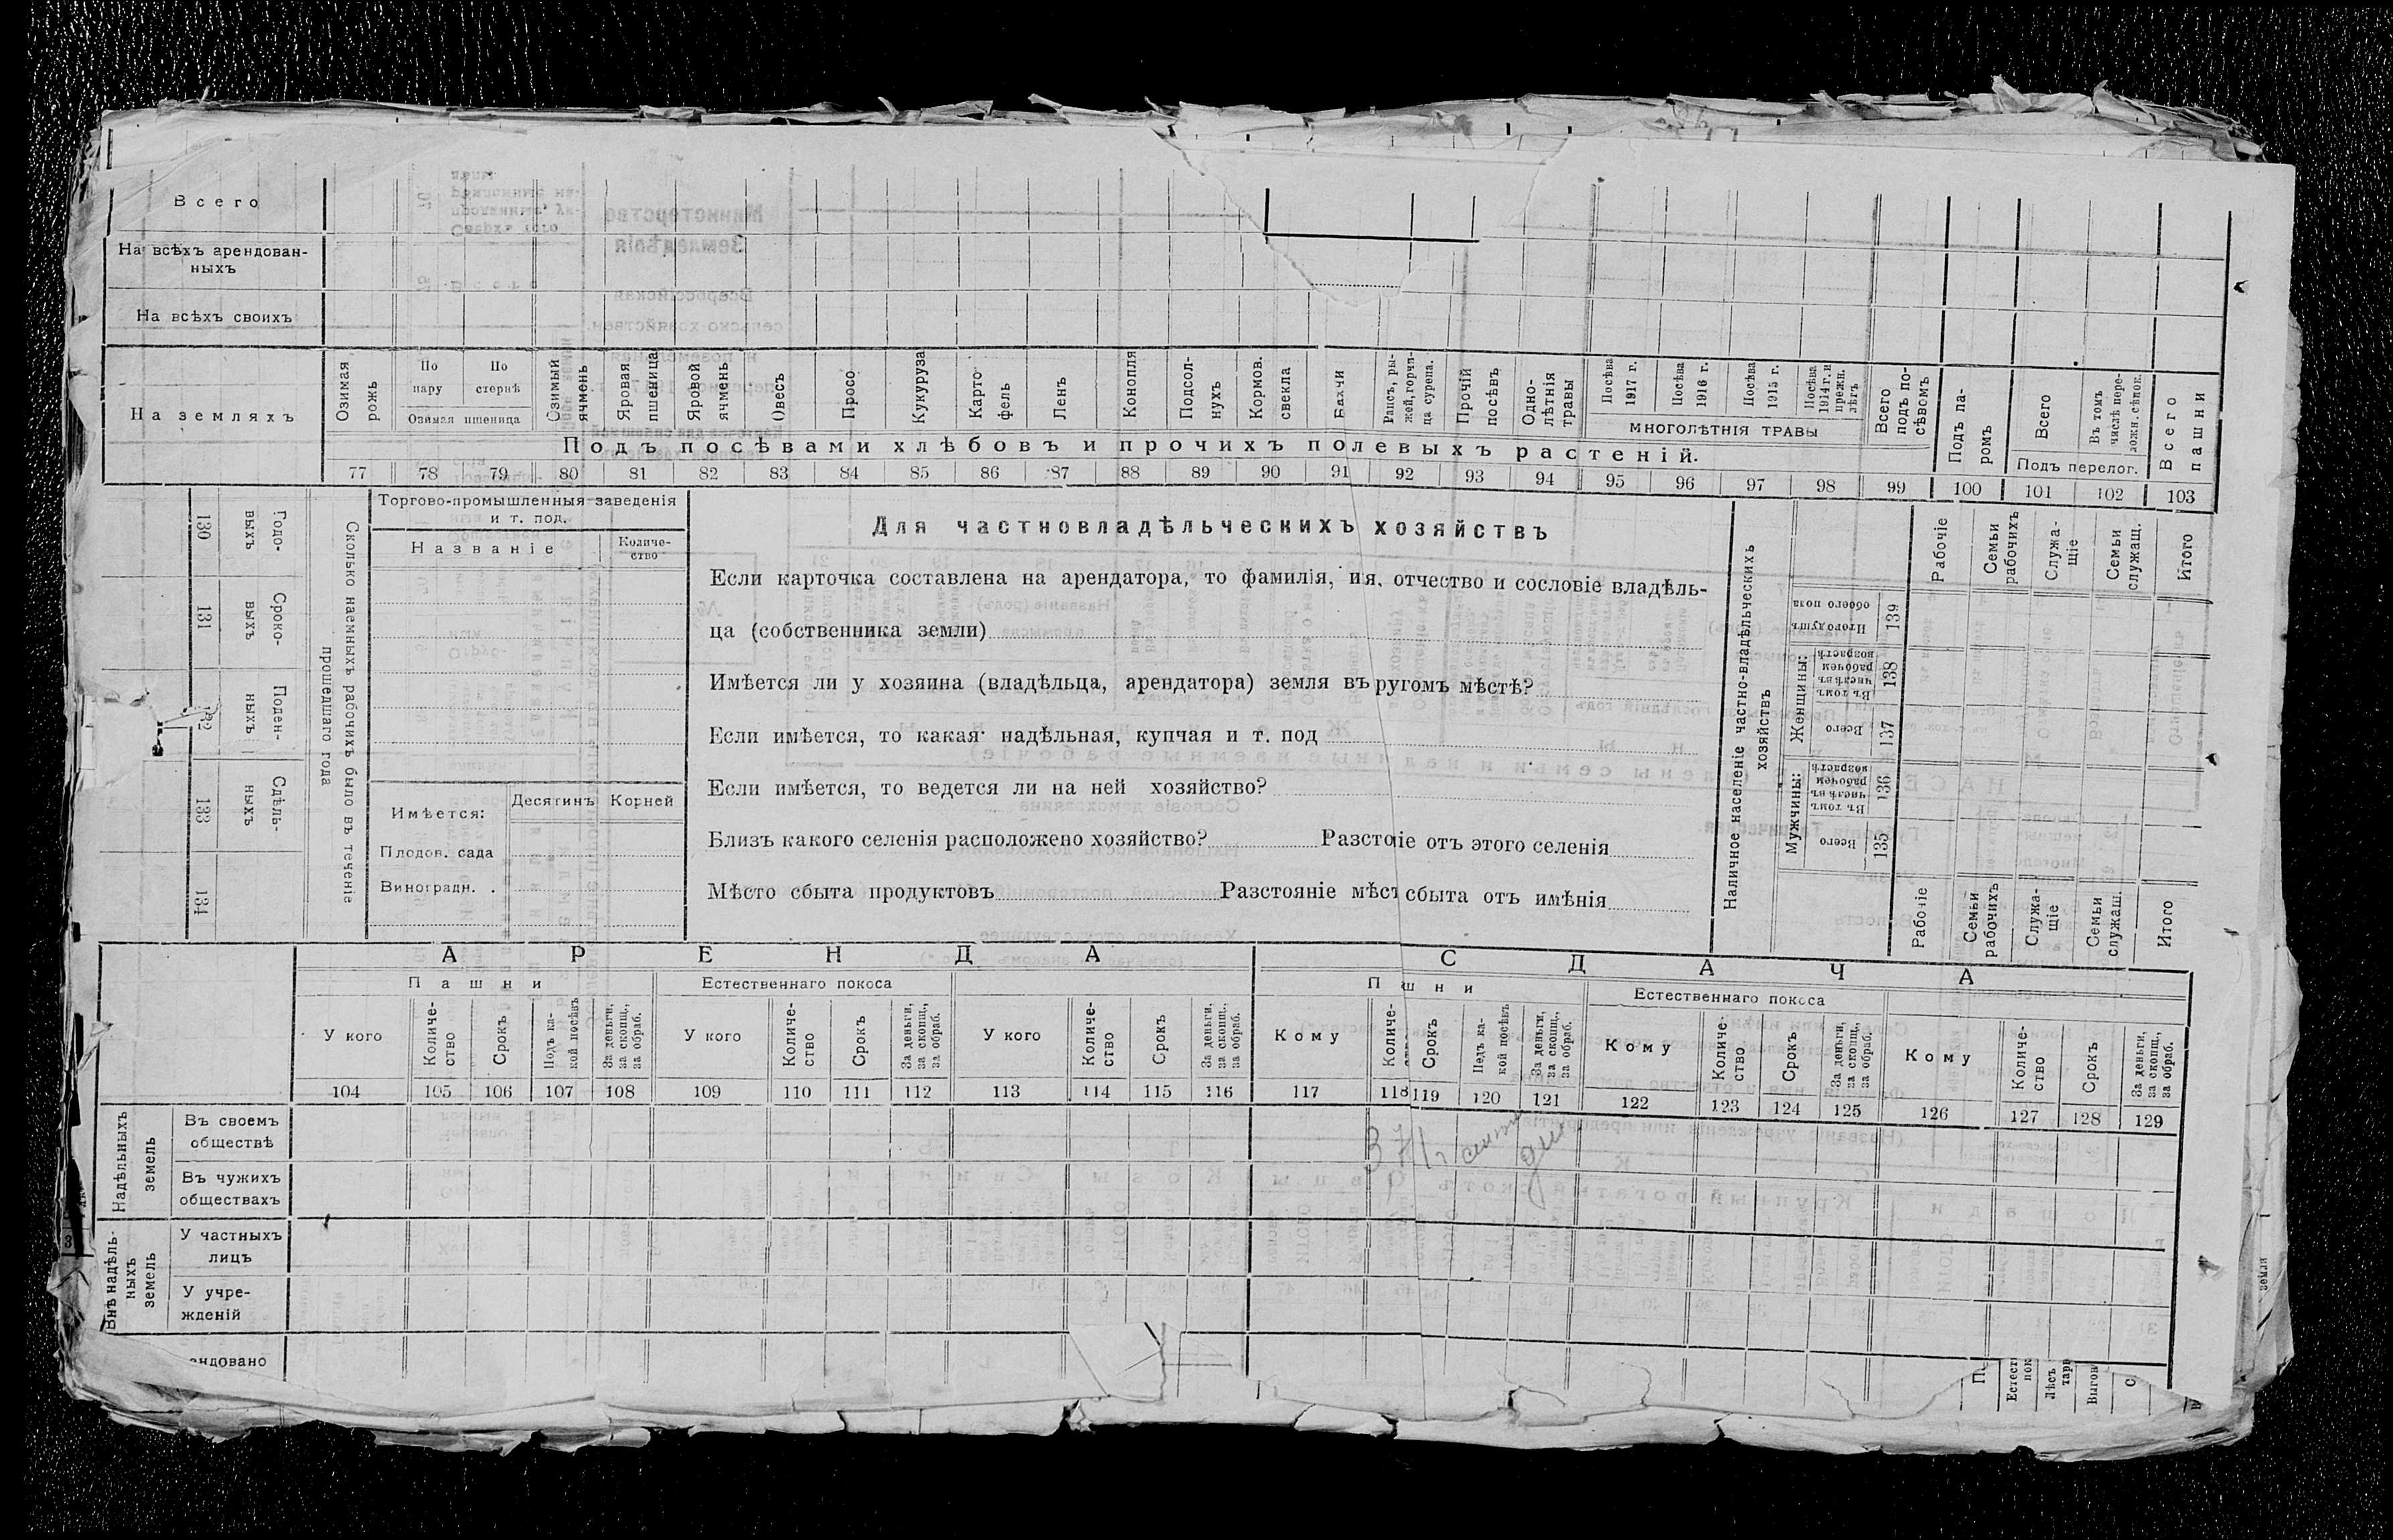 Всего
На всѣхъ арендован-
ныхъ
На всѣхъ своихъ
На земляхъ
Озимая рожь
По пару
По стернѣ
Озимая пшеница
Озимый ячмень
Яровая пшеница
Яровой ячмень
Овесъ
Просо
Кукуруза
Карто
фель
Ленъ
Конопля
Подсол-
нухъ
Кормов. свекла
Бахчи
Рапсъ, ры-
жей, горчи-
ца сурепа.
Прочій посѣвъ
Одно-
лѣтнія
травы
Посѣва 1917 г.
Посѣва 1916 г.
Посѣва 1915 г.
Посѣва 1914 г. и прежн. лѣтъ
МНОГОЛѢТНІЯ ТРАВЫ
Всего подъ по-
сѣвомъ
Подъ па-
ромъ
Всего
Въ томъ числѣ пере-
ложн. сѣнок.
Подъ перелог.
Всего пашни
Подъ посѣвами хлѣбовъ и прочихъ полевыхъ растеній.
77 78 79 80 81 82 83 84 85 86 87 88 89 90 91 92 93 94 95 96 97 98 99 100 101 102 103
Сколько наемныхъ рабочихъ было въ теченіе
прошедшаго года
Годо-
выхъ
130
Сроко-
выхъ
131
Поден-
ныхъ
Сдѣль-
ныхъ
133
134
Торгово-промышленныя заведенія
и т. под.
Названіе
Количе-
ство
Имѣется:
Десятинъ
Корней
Плодов. сада
Виноградн. .
Для частновладѣльческихъ хозяйствъ
Если карточка составлена на арендатора, то фамилія, ия, отчество и сословіе владѣль-
ца (собственника земли)
Имѣется ли у хозяина (владѣльца, арендатора) земля въ ругомъ мѣстѣ?
Если имѣется, то какая· надѣльная, купчая и т. под
Если имѣется, то ведется ли на ней хозяйство?
Близъ какого селенія расположено хозяйство? Разстоіе отъ этого селенія
Мѣсто сбыта продуктовъ Разстояніе мѣст сбыта отъ имѣнія
Наличное населеніе частно-владѣльческихъ
хозяйствъ
Мужчины:
Всего
135
Въ томъ числѣ въ рабочем возрастѣ
136
Женщины:
Всего
137
Въ томъ числѣ въ рабочем возрастѣ
138
Итого душъ обоего пола
139
Рабочіе
Семьи рабочихъ
Служа-
щіе
Семьи служащ.
Итого
Рабочіе
Семьи рабочихъ
Служа-
щіе
Семьи служащ.
Итого
АРЕНДА
СДАЧА
Пашни
Естественнаго покоса
П шни
Естественнаго покоса
У кого
Количе-
ство
Срокъ
Подъ ка-
кой посѣвъ
За деньги, за скопщ., за обраб.
У кого
Количе-
ство
Срокъ
За деньги, за скопщ., за обраб.
У кого
Количе-
ство
Срокъ
За деньги, за скопщ., за обраб.
Кому
Количе-
Срокъ
Подъ ка-
кой посѣвъ
За деньги, за скопщ., за обраб.
Кому
Количе-
ство
Срокъ
За деньги, за скопщ., за обраб.
Кому
Количе-
ство
Срокъ
За деньги, за скопщ., за обраб.
104 105 106 107 108 109 110 111 112 113 114 115 116 117 118 119 120 121 122 123 124 125 126 127 128 129
Надѣльныхъ земель
Въ своемъ
обществѣ
Въ чужихъ
обществахъ
Внѣ надѣль-
ныхъ земель
У частныхъ
лицъ
У учре-
жденій
ендовано
земли